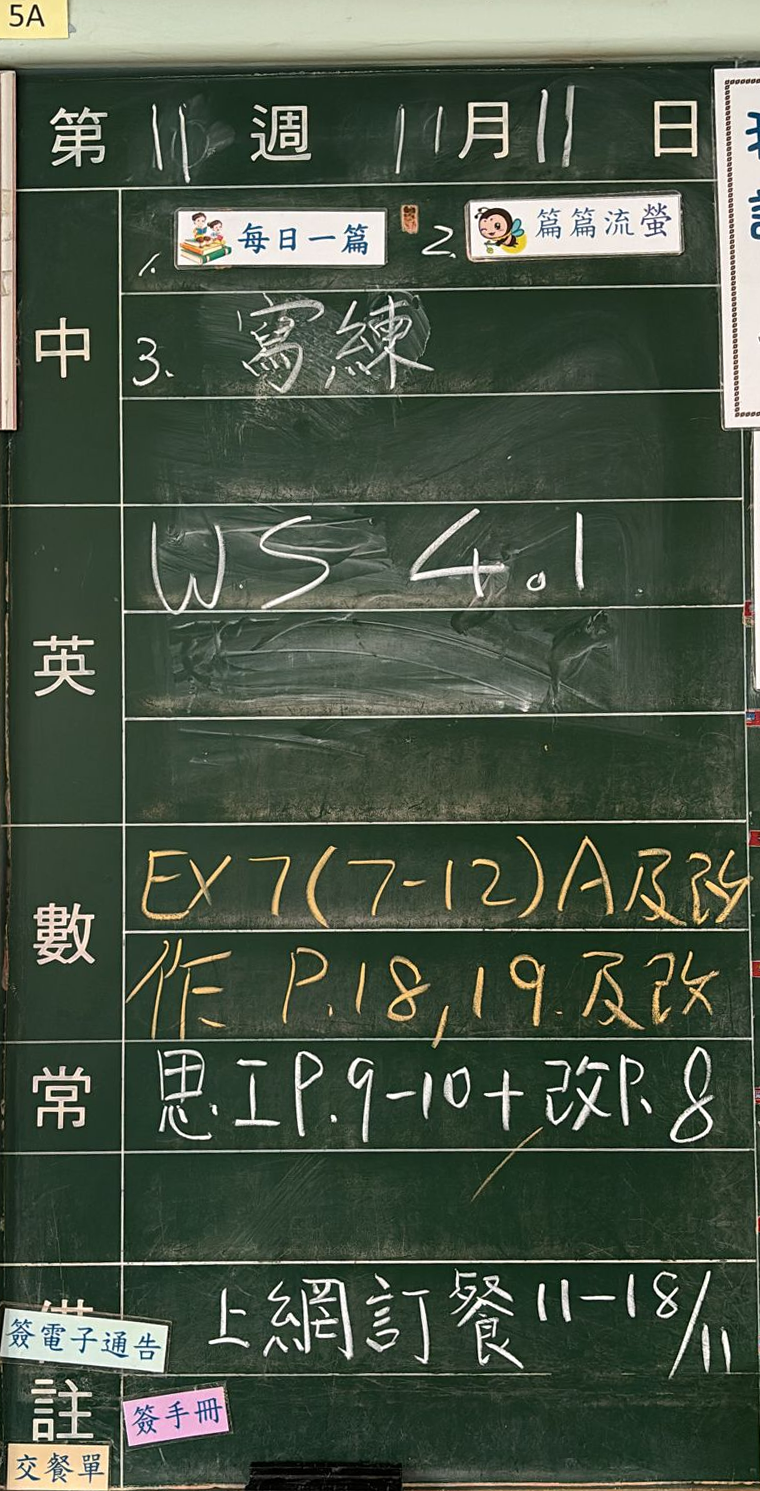 5A
第 11 週 11月11 日
中
1. 每日一篇 2. 篇篇流螢
3. 寫練
英
W.S 4.1
數
EX 7(7-12)A及改
作 P.18,19.及改
常
思.工P.9-10+改P.8
備註
上網訂餐11-18/11
簽電子通告
簽手冊
交餐單